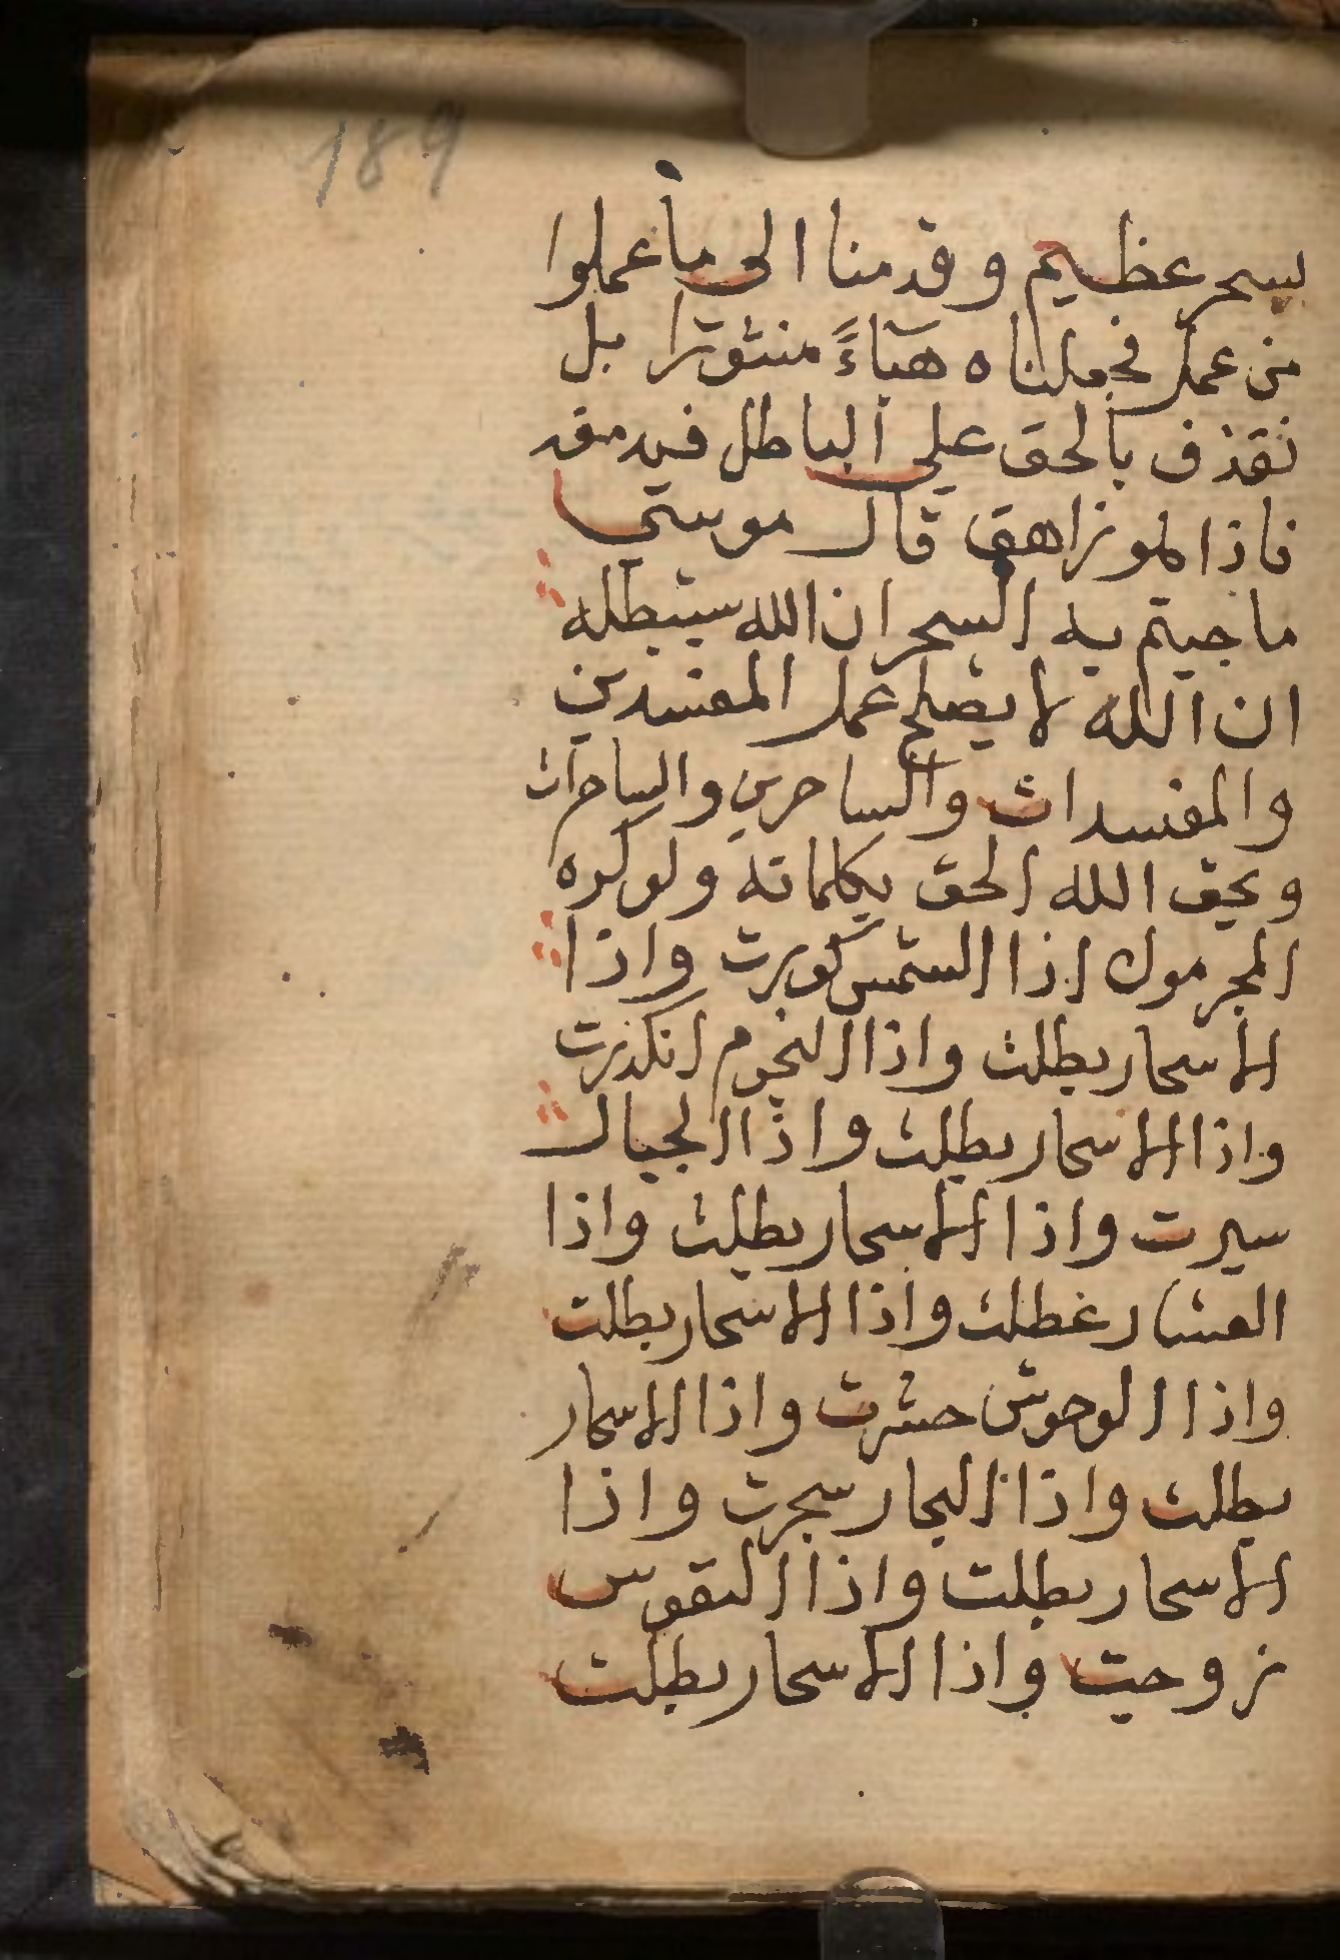 189
بسحر عظيم وقدمنا الى ما عملوا
من عمل فجعلناه هبآءً منثورا بل
نقذف بالحق على الباطل فيدمغه
فاذا هو زاهق قال موسى
ما جيتم به السحر ان الله سيبطله
ان الله لا يصلح عمل المفسدين
والمفسدات والساحرين والساحرات
ويحق الله الحق بكلماته ولو كره
المجرمون اذا الشمس كورت واذا
الاسحار بطلت واذا النجوم انكدرت
واذا الاسحار بطلت واذا الجبال
سيرت واذا الاسحار بطلت واذا
العشار عطلت واذا الاسحار بطلت
واذا الوحوش حشرت واذا الاسحار
بطلت واذا البحار سجرت واذا
الاسحار بطلت واذا النفوس
زوجت واذا الاسحار بطلت